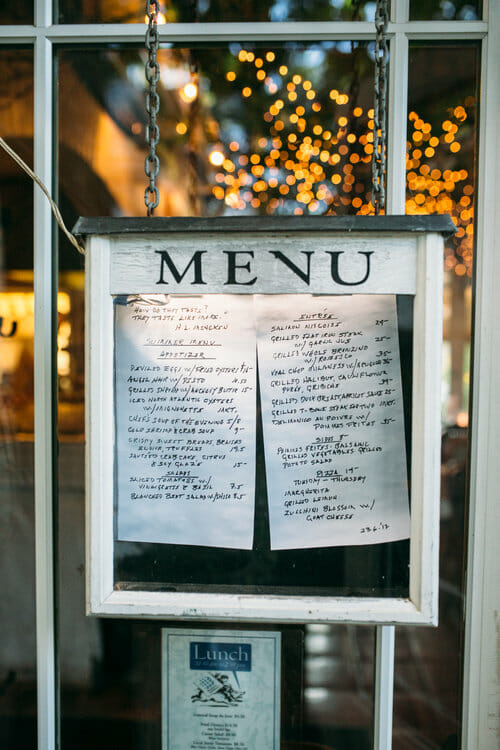 MENU
HOW DO THEY TASTE?
THEY TASTE LIKE MORE.
H.L. MENCKEN
SUMMER MENU
APPETIZER
DEVILED EGGS W/FRIED OYSTERS
ANGEL HAIR W/PESTO
GRILLED SHRIMP W/ BUTTER 15-
ICED NORTH ATLANTIC OYSTERS
W/MIGNONETTE MKT.
CHEF'S SOUP OF THE EVENING 5/8
COLD SHRIMP & CRAB SOUP 9-
CRISPY SWEET BREADS, BRAISED
TRUFFLES 19.5
SAUTEED CRAB CAKE, CITRUS
& SOY GLAZE 15-
SALADS
SLICED TOMATOES W/
VINAIGRETTE & BASIL 7.5
BLANCHED BEET SALAD W/ 8.5
ENTRÉE
SALMON NISCOISE 29-
GRILLED FLAT IRON STEAK
W/ GARLIC JUS 25-
GRILLED WHOLE BRONZINO
W/ ROMESCO 35-
VEAL CHOP MILANESE W/ 36-
GRILLED HALIBUT, CAULIFLOWER
PURÉE, GRIBICHE 39-
GRILLED DUCK BREAST, APRICOT SAUCE 25-
GRILLED T-BONE STEAK FOR TWO MKT.
AU POIVRE W/
POMMES FRITES 35-
SIDES 8-
POMMES FRITES - BALSAMIC
GRILLED VEGETABLES, GRILLED
POTATO SALAD
PIZZA 19-
TUESDAY - THURSDAY
MARGHERITA
GRILLED LEMON
ZUCCHINI BLOSSOM W/
GOAT CHEESE
23.6.'17
Lunch